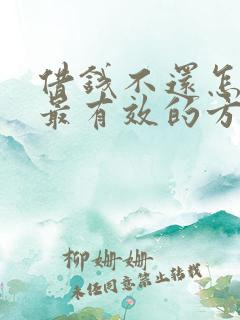 借钱不還怎
最有效的方
柳姗姗
未经同意禁止转载